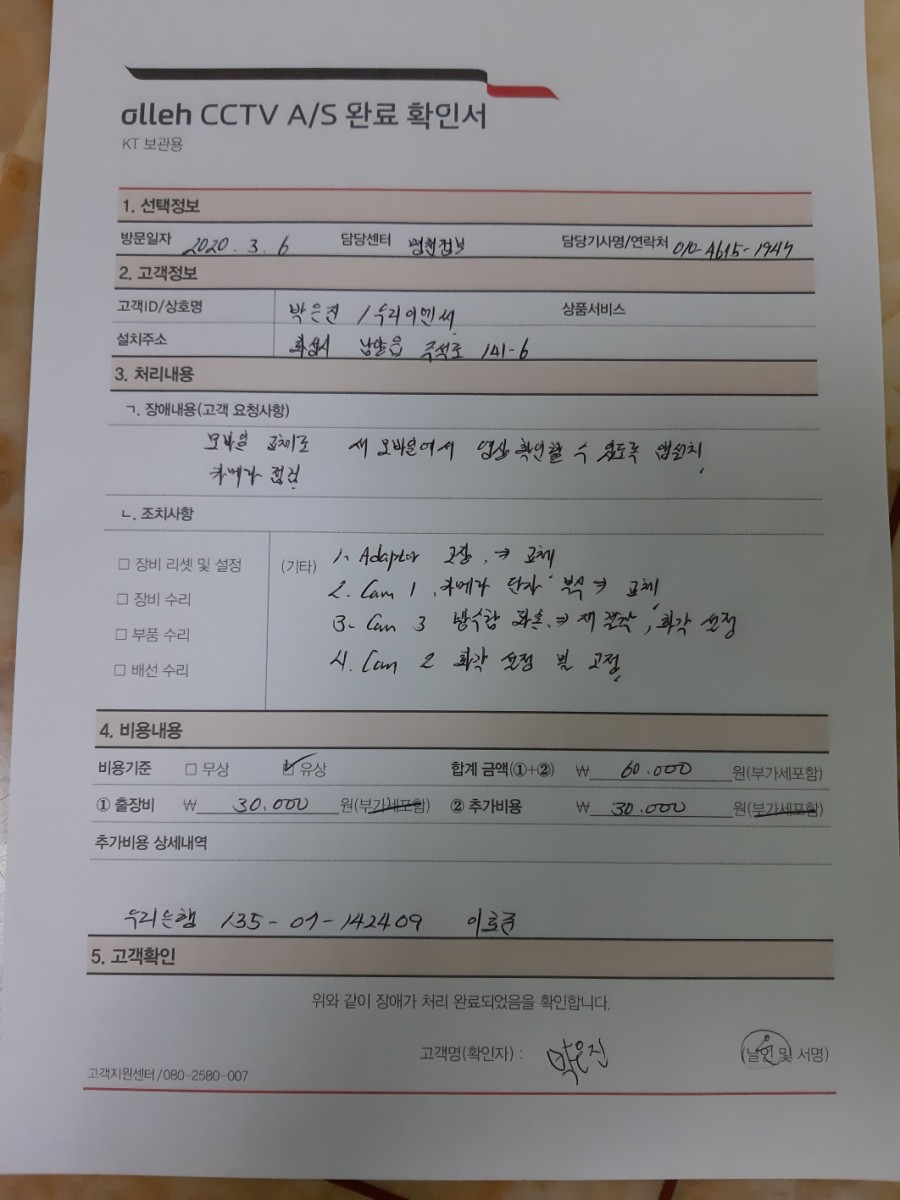 olleh CCTV A/S 완료 확인서
KT 보관용
1. 선택정보
방문일자 2020. 3. 6 담당센터 담당기사명/연락처 010-4615-1947
2. 고객정보
고객ID/상호명 박은진 / 우리이엔씨 상품서비스
설치주소 화성시 남양읍 주석로 141-6
3. 처리내용
ㄱ. 장애내용(고객 요청사항)
모바일 교체로 새 모바일에서 영상 확인할 수 있도록 앱설치,
카메라 점검
ㄴ. 조치사항
□ 장비 리셋 및 설정 (기타) 1. Adaptor 고장. → 교체
□ 장비 수리 2. Cam 1, 카메라 단자 부식 → 교체
□ 부품 수리 3. Cam 3 방수함 파손. → 재 결착, 화각 설정
□ 배선 수리 4. Cam 2 화각 설정 및 고정.
4. 비용내용
비용기준 □ 무상 ☑ 유상 합계 금액(①+②) ₩ 60.000 원(부가세포함)
① 출장비 ₩ 30.000 원(부가세포함) ② 추가비용 ₩ 30.000 원(부가세포함)
추가비용 상세내역
우리은행 135-07-142409
5. 고객확인
위와 같이 장애가 처리 완료되었음을 확인합니다.
고객명(확인자) : 박은진 (날인 및 서명)
고객지원센터/080-2580-007